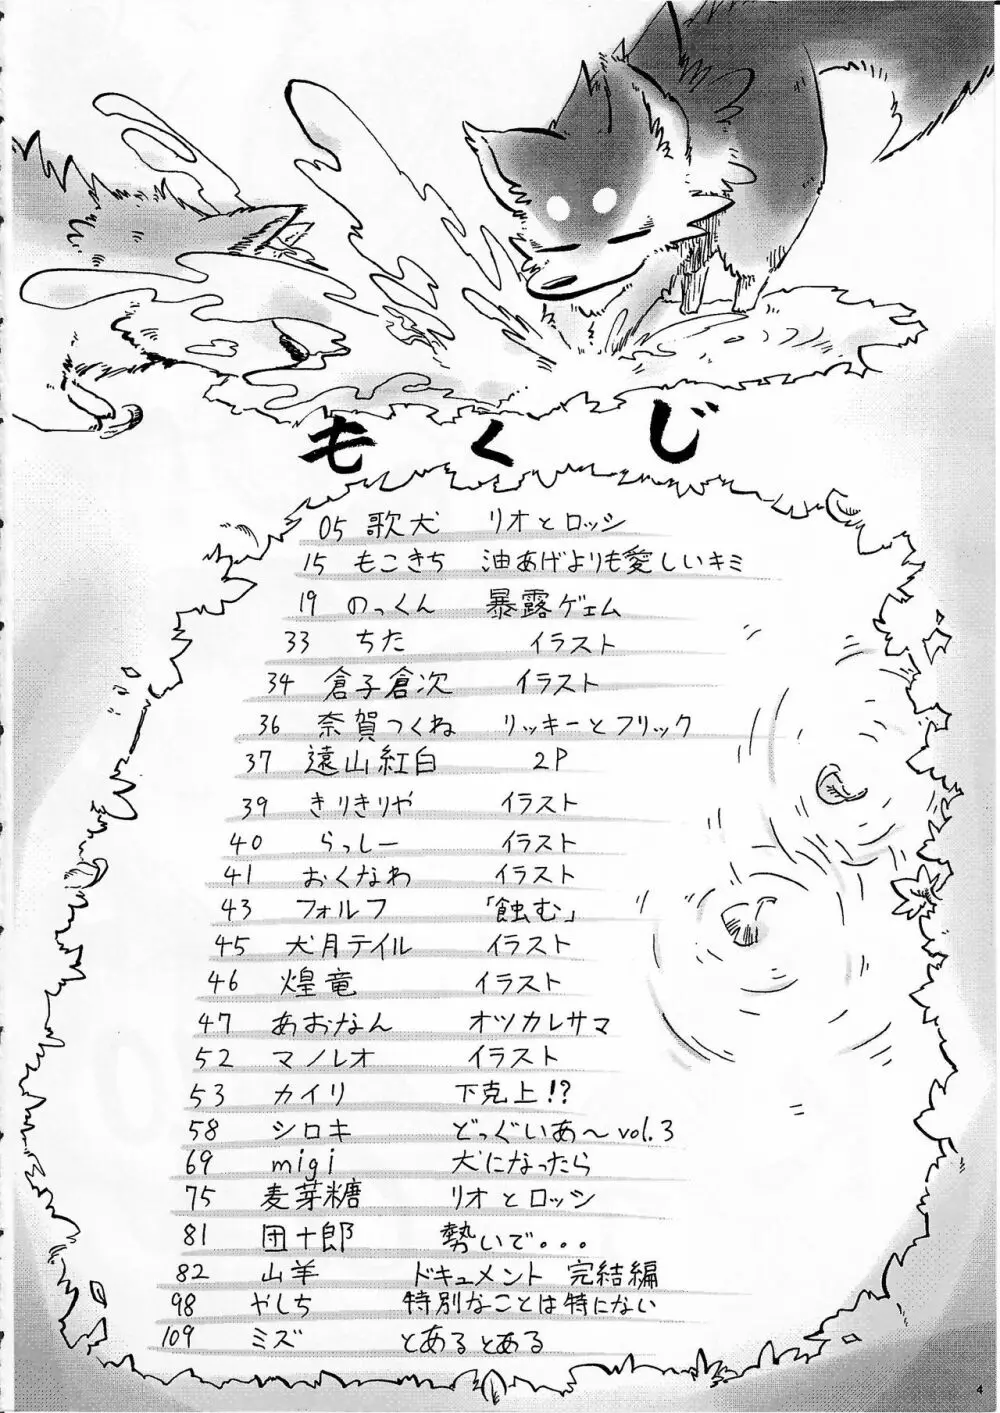 もくじ
05 歌犬 リオとロッシ
15 もこきち 油あげよりも愛しいキミ
19 のっくん 暴露ゲェム
33 ちた イラスト
34 倉子倉次 イラスト
36 奈賀つくね リッキーとフリック
37 遠山紅白 2P
39 きりきりや イラスト
40 らっしー イラスト
41 おくなわ イラスト
43 フォルフ 「蝕む」
45 犬月テイル イラスト
46 煌竜 イラスト
47 あおなん オツカレサマ
52 マノレオ イラスト
53 カイリ 下克上!?
58 シロキ どっぐいあ〜vol.3
69 migi 犬になったら
75 麦芽糖 リオとロッシ
81 団十郎 勢いで・・・
82 山羊 ドキュメント 完結編
98 やしち 特別なことは特にない
109 ミズ とあるとある
4